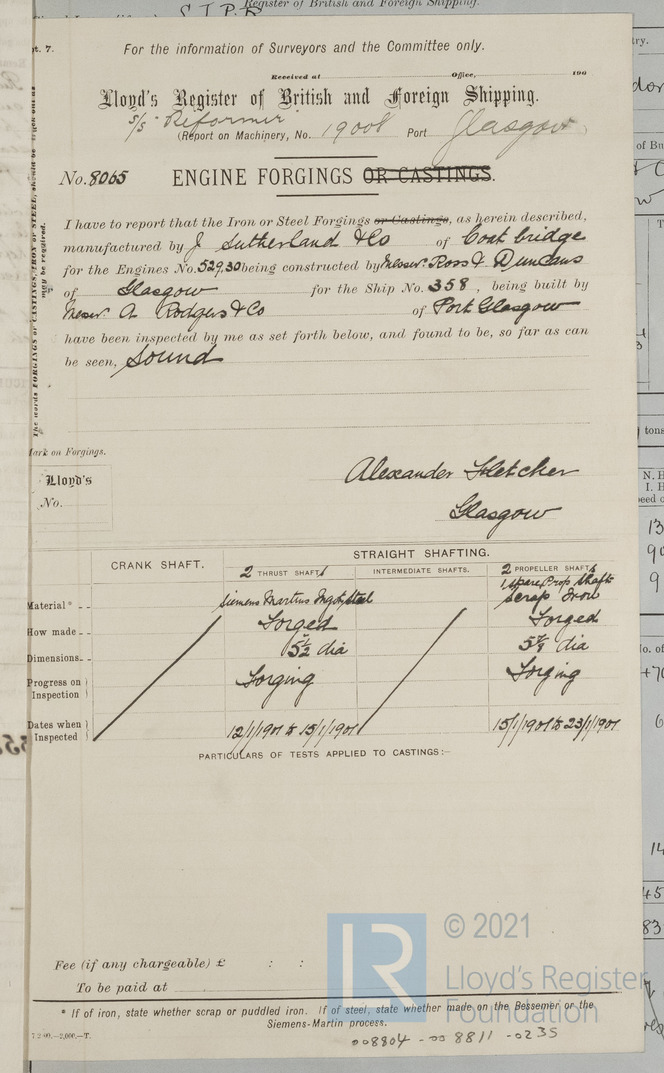 Register of British and Foreign Shipping.
pt. 7.
For the information of Surveyors and the Committee only.
Received at Office, 190
Lloyd's Register of British and Foreign Shipping.
s/s "Reformer"
(Report on Machinery, No. 19008 Port Glasgow)
No. 8065 ENGINE FORGINGS OR CASTINGS.
I have to report that the Iron or Steel Forgings or Castings, as herein described,
manufactured by J Sutherland & Co of Coatbridge
for the Engines No. 529.30 being constructed by Messrs. Ross & Duncans
of Glasgow for the Ship No. 358, being built by
Messrs. A. Rodgers & Co of Port Glasgow
have been inspected by me as set forth below, and found to be, so far as can
be seen, Sound
The words FORGINGS or CASTINGS, IRON or STEEL, should be
may be required.
Mark on Forgings.
Lloyd's
No.
Alexander Fletcher
Glasgow
STRAIGHT SHAFTING.
CRANK SHAFT. 2 THRUST SHAFTS INTERMEDIATE SHAFTS. 2 PROPELLER SHAFTS
1 spare Prop Shaft
Material* Siemens Martins Ingot steel Scrap Iron
How made Forged Forged
Dimensions 5 1/2 dia 5 7/8 dia
Progress on Inspection Forging Forging
Dates when Inspected 12/1/1901 to 15/1/1901 15/1/1901 to 23/1/1901
PARTICULARS OF TESTS APPLIED TO CASTINGS:–
Fee (if any chargeable) £ : :
To be paid at
* If of iron, state whether scrap or puddled iron. If of steel, state whether made on the Bessemer or the
Siemens-Martin process.
7.2.00.—2,000.—T.
008804-008811-0235
© 2021
Lloyd's Register
Foundation